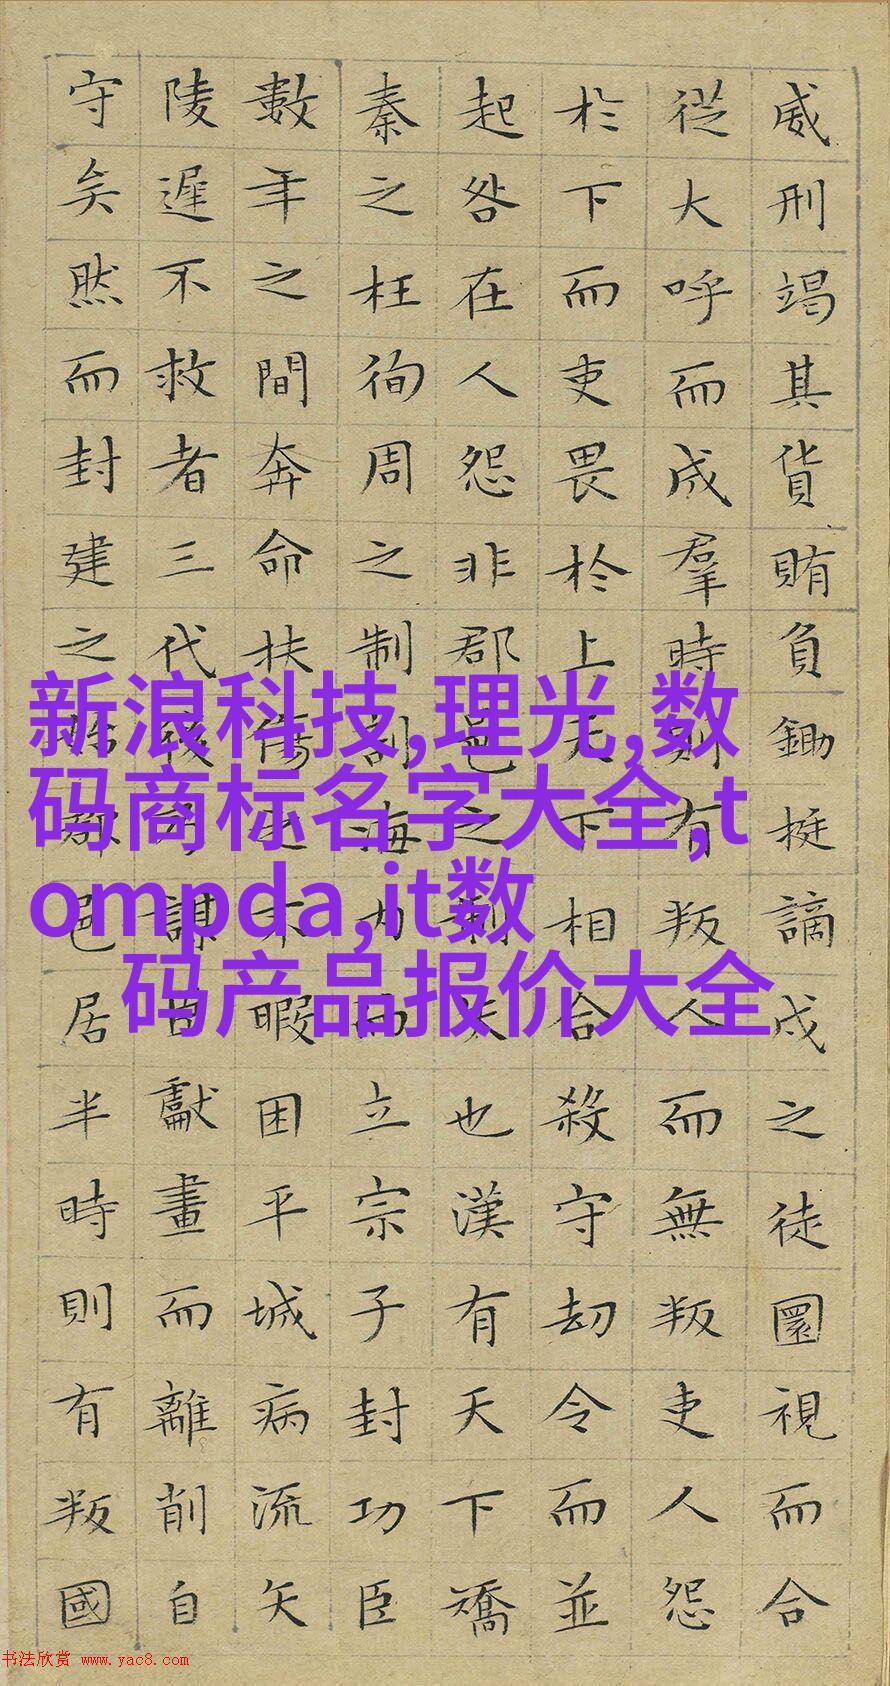 威刑竭其貨賄負鋤梃謫戍之徒圜視而合
從大呼而成羣時則有叛人而無叛吏人怨
於下而吏畏於上天下相合殺守劫令而並
起咎在人怨非郡邑之制失也漢有天下矯
秦之枉徇周之制剖海內而立宗子封功臣
數年之間奔命扶傷之不暇困平城病流矢
陵遲不救者三代後乃謀臣獻畫而離削自
守矣然而封建之始郡邑居半時則有叛國
新浪科技,理光,数
码商标名字大全,t
ompda,it数
码产品报价大全
书法欣赏 www.yac8.com